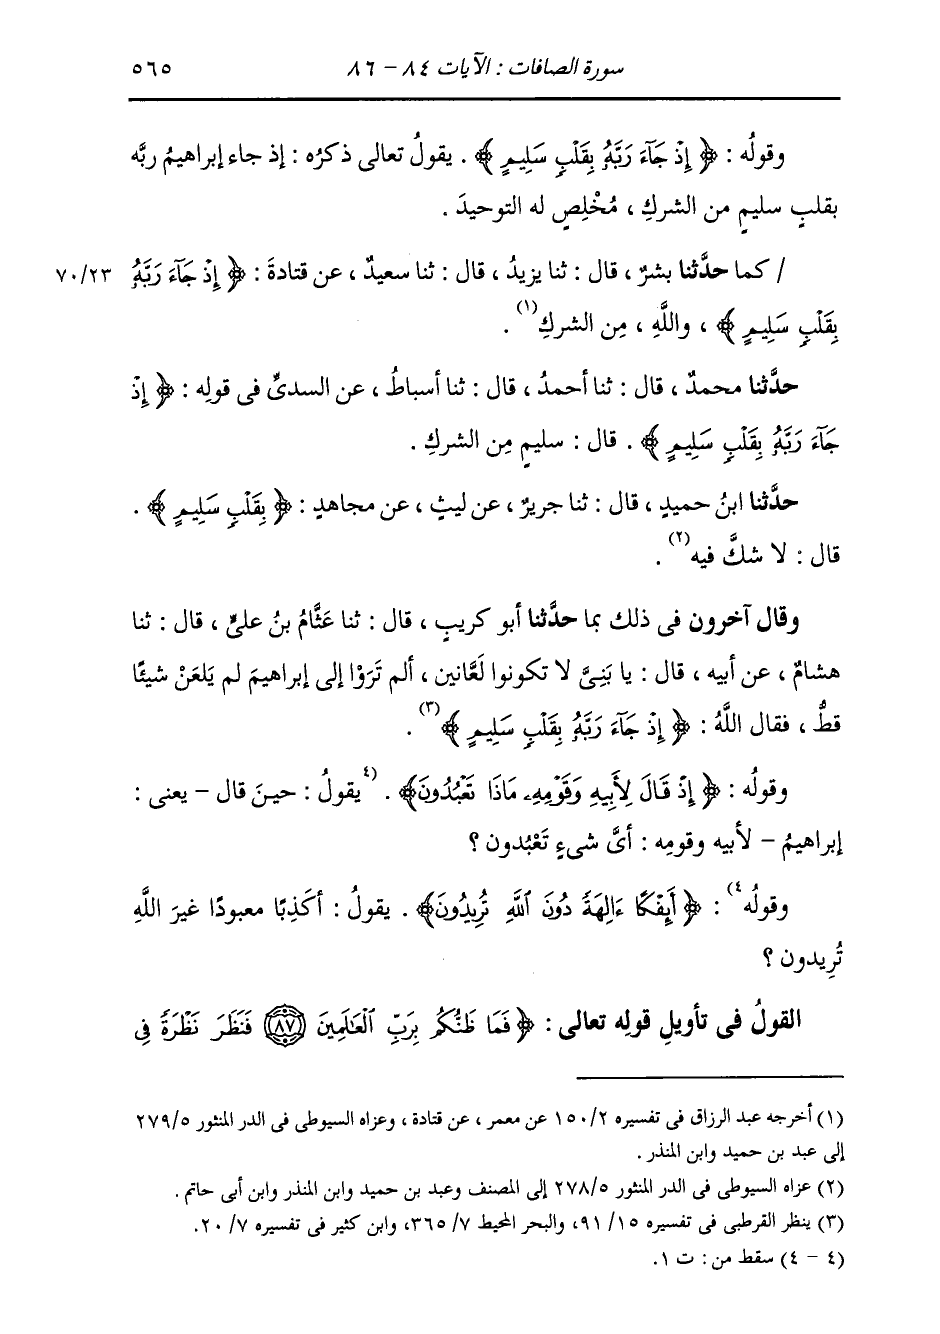 سورة الصافات : الآيات ٨٤ - ٨٦ ٥٦٥
وقولُه : ﴿ إِذْ جَآءَ رَبَّهُۥ بِقَلْبٍ سَلِيمٍ ﴾ . يقولُ تعالى ذكرُه : إذ جاء إبراهيمُ ربَّه
بقلبٍ سليمٍ من الشركِ ، مُخْلِصٍ له التوحيدَ .
/ كما حدَّثنا بشرٌ ، قال : ثنا يزيدُ ، قال : ثنا سعيدٌ ، عن قتادةَ : ﴿ إِذْ جَآءَ رَبَّهُۥ ٧٠/٢٣
بِقَلْبٍ سَلِيمٍ ﴾ ، واللَّهِ ، مِن الشركِ(١) .
حدَّثنا محمدٌ ، قال : ثنا أحمدُ ، قال : ثنا أسباطُ ، عن السدىِّ فى قولِه : ﴿ إِذْ
جَآءَ رَبَّهُۥ بِقَلْبٍ سَلِيمٍ ﴾ . قال : سليمٍ مِن الشركِ .
حدَّثنا ابنُ حميدٍ ، قال : ثنا جريرٌ ، عن ليثٍ ، عن مجاهدٍ : ﴿ بِقَلْبٍ سَلِيمٍ ﴾ .
قال : لا شكَّ فيه(٢) .
وقال آخرون فى ذلك بما حدَّثنا أبو كريبٍ ، قال : ثنا عَثَّامُ بنُ علىٍّ ، قال : ثنا
هشامٌ ، عن أبيه ، قال : يا بَنِىَّ لا تكونوا لَعَّانين ، ألم تَرَوْا إلى إبراهيمَ لم يَلعَنْ شيئًا
قطُّ ، فقال اللَّهُ : ﴿ إِذْ جَآءَ رَبَّهُۥ بِقَلْبٍ سَلِيمٍ ﴾(٣) .
وقولُه : ﴿ إِذْ قَالَ لِأَبِيهِ وَقَوْمِهِۦ مَاذَا تَعْبُدُونَ﴾ . (٤يقولُ : حينَ قال – يعنى :
إبراهيمُ – لأبيه وقومِه : أىَّ شىءٍ تَعْبُدون ؟
وقولُه٤) : ﴿ أَئِفْكًا ءَالِهَةً دُونَ ٱللَّهِ تُرِيدُونَ﴾ . يقولُ : أكَذِبًا معبودًا غيرَ اللَّهِ
تُرِيدون ؟
القولُ فى تأويلِ قولِه تعالى : ﴿ فَمَا ظَنُّكُم بِرَبِّ ٱلْعَٰلَمِينَ ٨٧ فَنَظَرَ نَظْرَةً فِى
(١) أخرجه عبد الرزاق فى تفسيره ١٥٠/٢ عن معمر ، عن قتادة ، وعزاه السيوطى فى الدر المنثور ٢٧٩/٥
إلى عبد بن حميد وابن المنذر .
(٢) عزاه السيوطى فى الدر المنثور ٢٧٨/٥ إلى المصنف وعبد بن حميد وابن المنذر وابن أبى حاتم .
(٣) ينظر القرطبى فى تفسيره ١٥/ ٩١، والبحر المحيط ٧/ ٣٦٥، وابن كثير فى تفسيره ٧/ ٢٠.
(٤ - ٤) سقط من : ت ١.